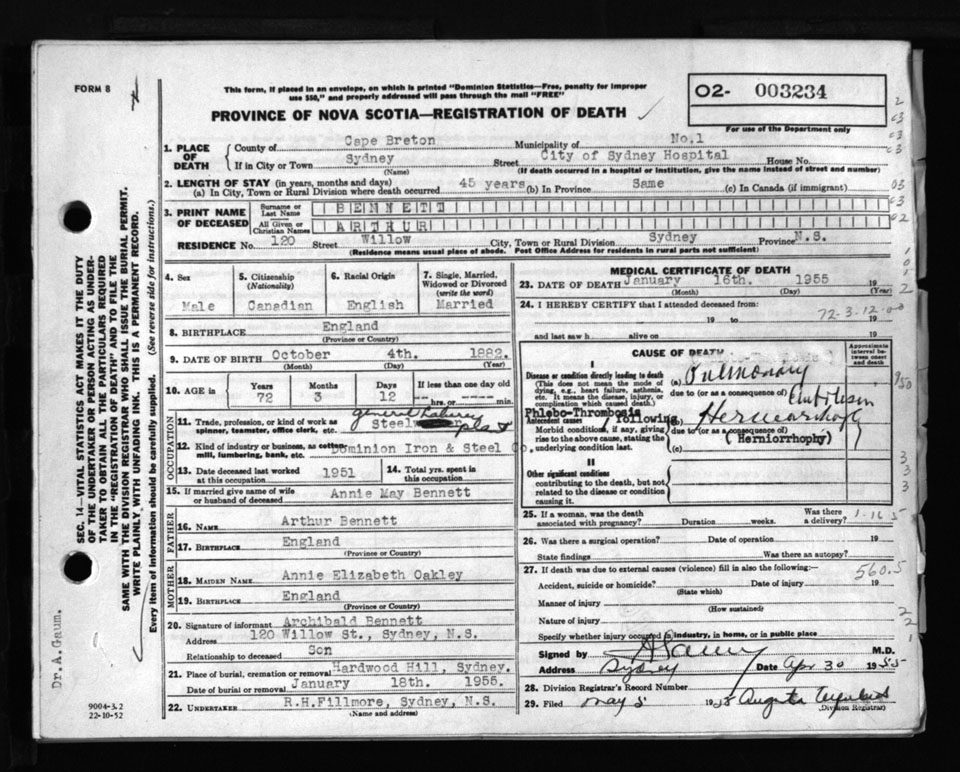 FORM 8
This form, if placed in an envelope, on which is printed "Dominion Statistics—Free, penalty for improper
use $50," and properly addressed will pass through the mail "FREE"
PROVINCE OF NOVA SCOTIA—REGISTRATION OF DEATH
02- 003234
For use of the Department only
1. PLACE OF DEATH
County of Cape Breton Municipality of No.1
If in City or Town Sydney Street City of Sydney Hospital House No.
(Name) (If death occurred in a hospital or institution, give the name instead of street and number)
2. LENGTH OF STAY (in years, months and days)
(a) In City, Town or Rural Division where death occurred 45 years (b) In Province Same (c) In Canada (if immigrant)
3. PRINT NAME OF DECEASED
Surname or Last Name BENNETT
All Given or Christian Names ARTHUR
RESIDENCE No. 120 Street Willow City, Town or Rural Division Sydney Province N.S.
(Residence means usual place of abode. Post Office Address for residents in rural parts not sufficient)
4. Sex
Male
5. Citizenship
(Nationality)
Canadian
6. Racial Origin
English
7. Single, Married,
Widowed or Divorced
(write the word)
Married
8. BIRTHPLACE England
(Province or Country)
9. DATE OF BIRTH October 4th. 1882.
(Month) (Day) (Year)
10. AGE in
Years Months Days If less than one day old
72 3 12 hrs. or min.
OCCUPATION
11. Trade, profession, or kind of work as
spinner, teamster, office clerk, etc. Steel
general
plant
12. Kind of industry or business, as cotton-
mill, lumbering, bank, etc. Dominion Iron & Steel Co
13. Date deceased last worked
at this occupation 1951
14. Total yrs. spent in
this occupation
15. If married give name of wife
or husband of deceased Annie May Bennett
FATHER
16. NAME Arthur Bennett
17. BIRTHPLACE England
(Province or Country)
MOTHER
18. MAIDEN NAME Annie Elizabeth Oakley
19. BIRTHPLACE England
(Province or Country)
20. Signature of informant Archibald Bennett
Address 120 Willow St., Sydney, N.S.
Relationship to deceased Son
21. Place of burial, cremation or removal Hardwood Hill, Sydney.
Date of burial or removal January 18th. 1955.
22. UNDERTAKER R.H.Fillmore, Sydney, N.S.
(Name and address)
MEDICAL CERTIFICATE OF DEATH
23. DATE OF DEATH January 16th. 1955 19
(Month) (Day) (Year)
24. I HEREBY CERTIFY that I attended deceased from:
19 to 19
72-3-12-00
and last saw h alive on 19
CAUSE OF DEATH
Approximate interval between onset and death
I
Disease or condition directly leading to death
(This does not mean the mode of
dying, e.g., heart failure, asthenia,
etc. It means the disease, injury, or
complication which caused death.)
(a) Pulmonary
due to (or as a consequence of) Embolism
Phlebo-Thrombosis following
Antecedent causes
Morbid conditions, if any, giving
rise to the above cause, stating the
underlying condition last.
due to (or as a consequence of)
(Herniorrhophy)
(c)
II
Other significant conditions
contributing to the death, but not
related to the disease or condition
causing it.
25. If a woman, was the death
associated with pregnancy? Duration weeks. Was there a delivery?
1-16-5
26. Was there a surgical operation? Date of operation 19
State findings Was there an autopsy?
27. If death was due to external causes (violence) fill in also the following:
560.5
Accident, suicide or homicide? Date of injury 19
(State which)
Manner of injury
(How sustained)
Nature of injury
Specify whether injury occurred in industry, in home, or in public place
Signed by A Gaum M.D.
Address Sydney Date Apr 30 1955
28. Division Registrar's Record Number
29. Filed May 5 1955 Augusta
(Division Registrar)
SEC. 14—VITAL STATISTICS ACT MAKES IT THE DUTY
OF THE UNDERTAKER OR PERSON ACTING AS UNDER-
TAKER TO OBTAIN ALL THE PARTICULARS REQUIRED
IN THE "REGISTRATION OF DEATH" AND TO FILE THE
SAME WITH THE DIVISION REGISTRAR WHO SHALL ISSUE THE BURIAL PERMIT.
WRITE PLAINLY WITH UNFADING INK. THIS IS A PERMANENT RECORD.
Every item of information should be carefully supplied. (See reverse side for instructions.)
Dr.A.Gaum.
9004-3.2
22-10-52